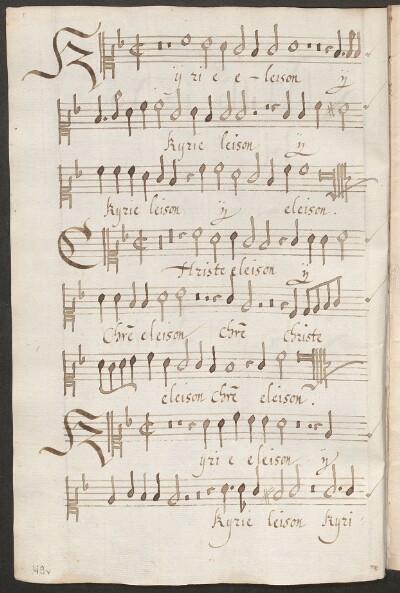 K yrie e-leison ÿ
Kyrie leison ÿ
Kyrie leison ÿ eleison.
C Hriste eleison ÿ
Chrē eleison Chrē Christe
eleison Chrē eleison.
K yrie eleison ÿ
Kyrie leison Kyri
49v